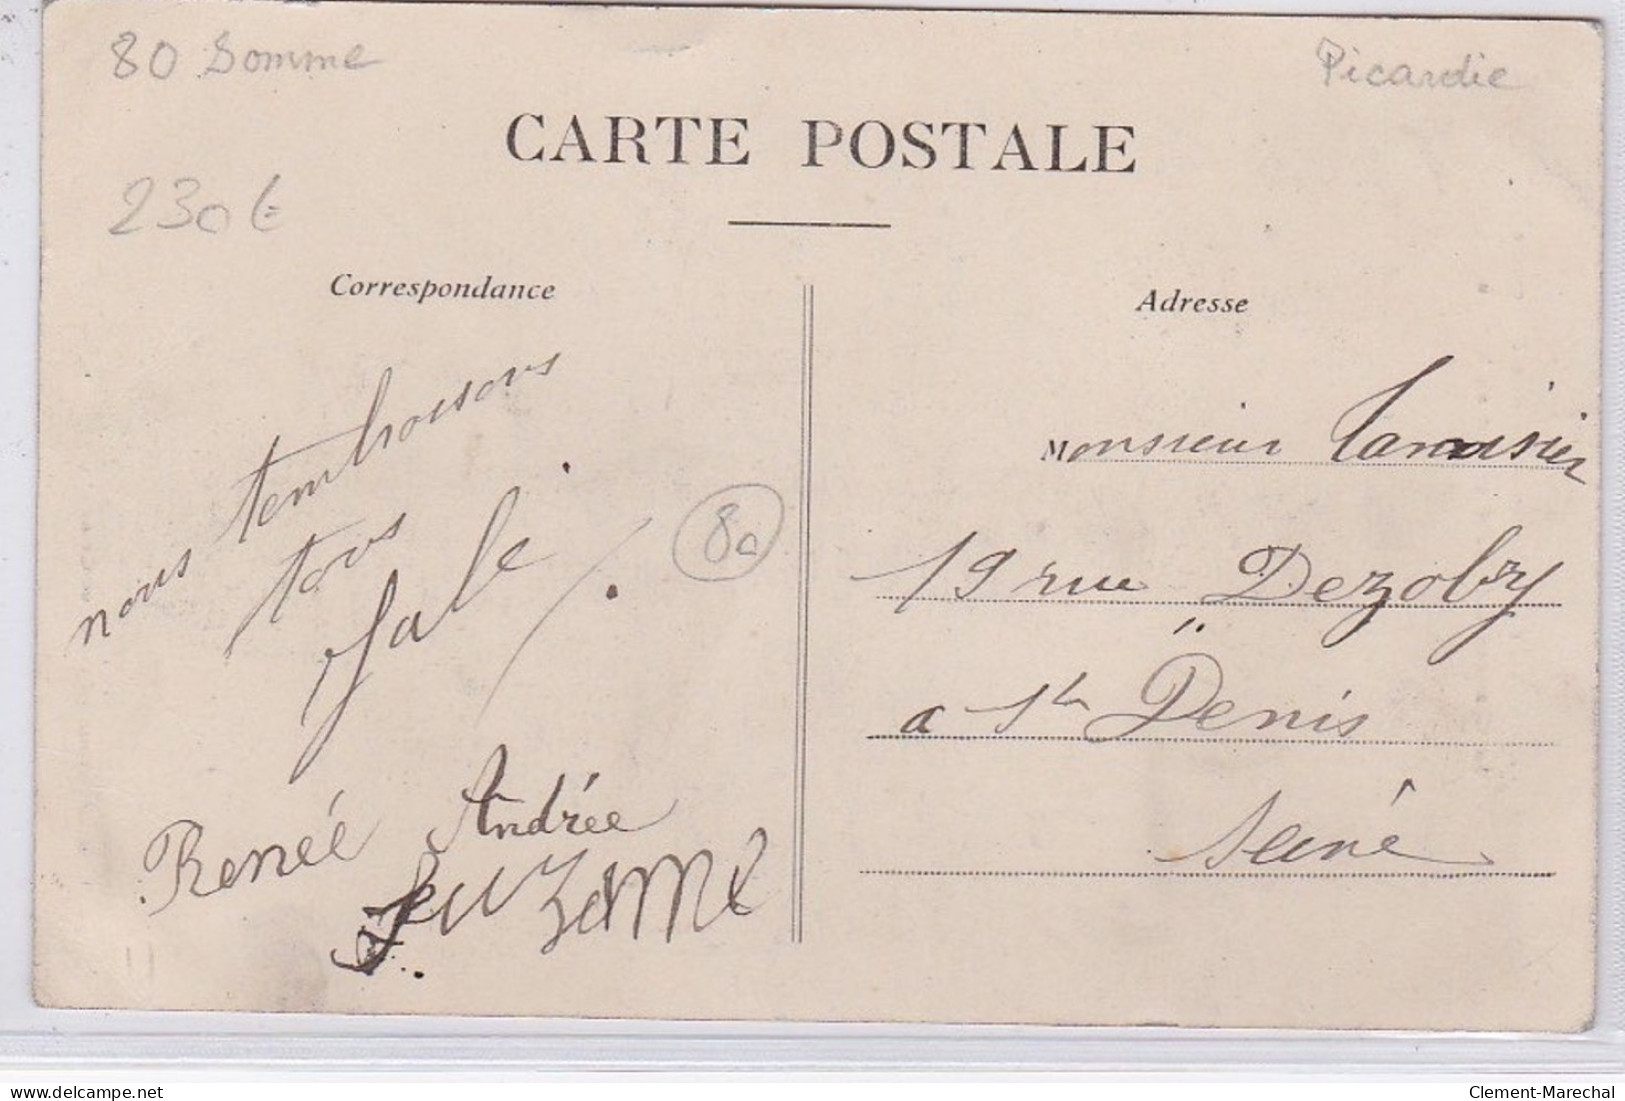 80 Somme
Picardie
CARTE POSTALE
230€
Correspondance
Adresse
nous tembrassons
tous
80
Monsieur
19 rue Dezobry
a St Denis
Seine
Renée Andrée
Suzanne
delcampe.net
Clement-Marechal